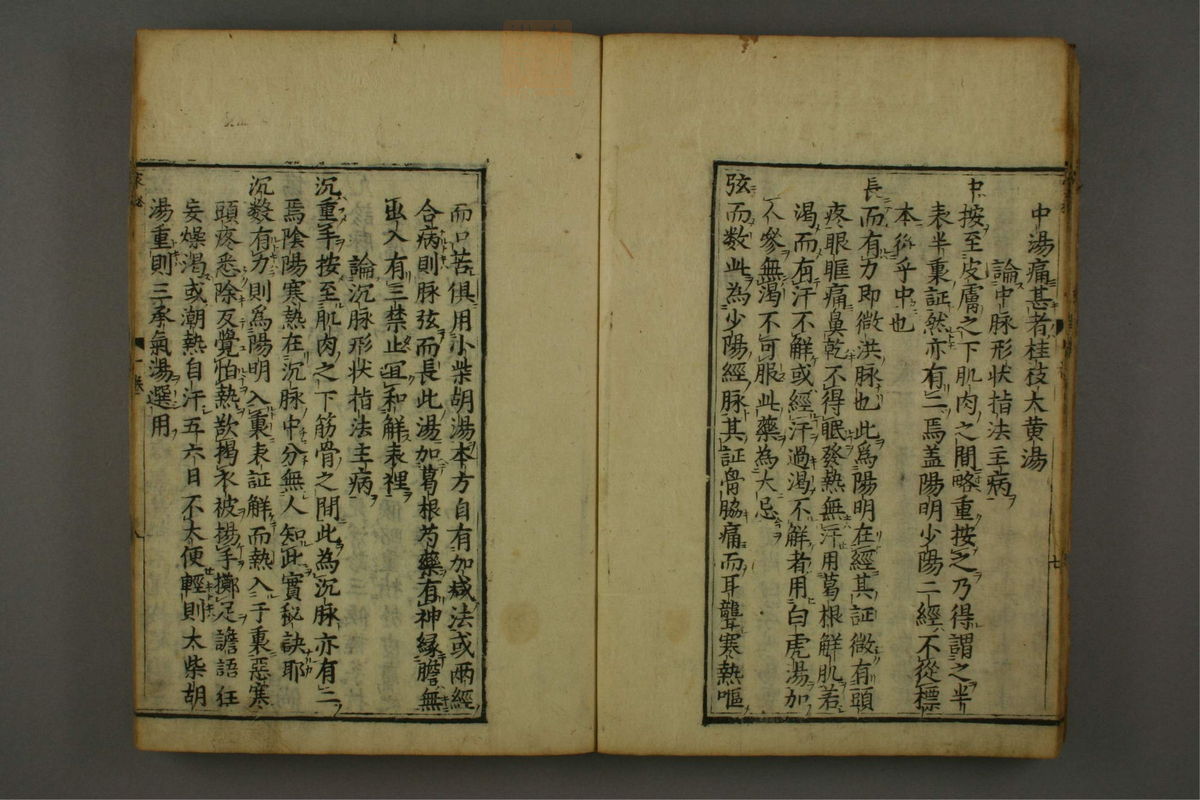 中湯痛甚者桂枝大黄湯
論中脉形状指法主病
中按至皮膚之下肌肉之間略重按之乃得謂之半
表半裏証然亦有二焉盖陽明少陽二經不從標
本從乎中也
長而有力即微洪脉也此為陽明在經其証微有頭
疼眼眶痛鼻乾不得眠發熱無汗用葛根解肌若
渴而有汗不解或經汗過渴不解者用白虎湯加
人参無渴不可服此藥為大忌
弦而数此為少陽經脉其証骨脇痛而耳聾寒熱嘔
七
而口苦俱用小柴胡湯本方自有加减法或兩經
合病則脉弦而長此湯加葛根芍藥有神縁膽無
出入有三禁止宜和解表裡
論沉脉形状指法主病
沉重手按至肌肉之下筋骨之間此為沉脉亦有二
焉陰陽寒熱在沉脉中分無人知此實秘訣耶
沉数有力則為陽明入裏表証解而熱入于裏惡寒
頭疼悉除反覺怕熱歆掲衣被揚手擲足譫語狂
妄燥渇或潮熱自汗五六日不大便輕則大柴胡
湯重則三承氣湯選用
一卷